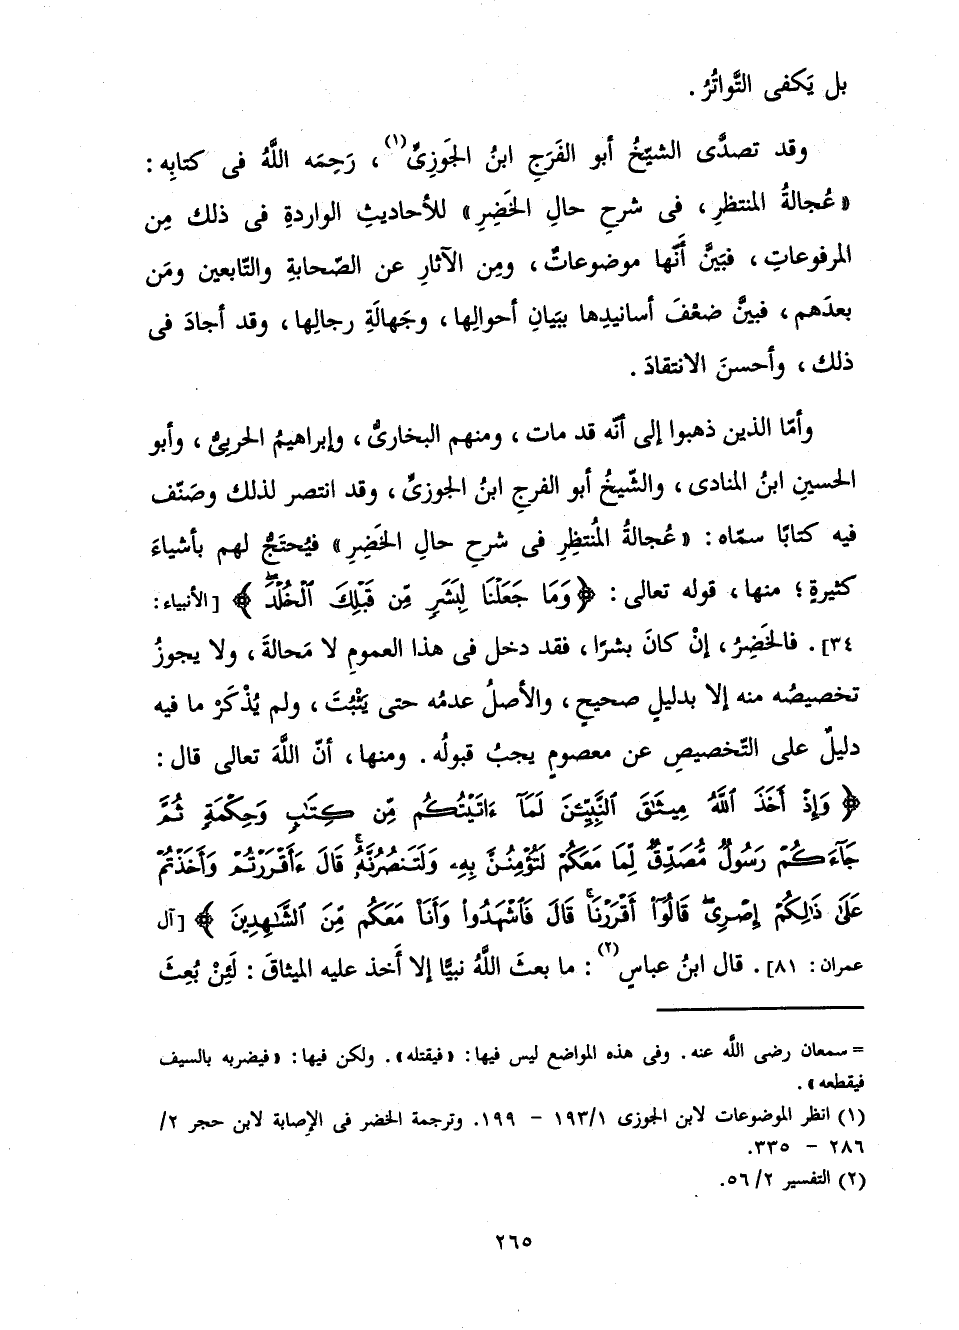 بل يَكفى التَّواتُرُ .
وقد تصدَّى الشيّخُ أبو الفَرَجِ ابنُ الجَوزِىِّ(١) ، رَحِمَه اللَّهُ فى كتابِه :
« عُجالةُ المنتظرِ ، فى شرحِ حالِ الخَضِرِ » للأحاديثِ الواردةِ فى ذلك مِن
المرفوعاتِ ، فبَيَّنَ أَنَّها موضوعاتٌ ، ومِن الآثارِ عن الصّحابةِ والتّابعين ومَن
بعدَهم ، فبيَّنَ ضعْفَ أسانيدِها ببَيانِ أحوالِها ، وجَهالَةِ رجالِها ، وقد أجادَ فى
ذلك ، وأحسنَ الانتقادَ .
وأمّا الذين ذهبوا إلى أنّه قد مات ، ومنهم البخارىُّ ، وإبراهيمُ الحربىُّ ، وأبو
الحسينِ ابنُ المنادى ، والشّيخُ أبو الفرجِ ابنُ الجوزىِّ ، وقد انتصر لذلك وصَنّف
فيه كتابًا سمّاه : « عُجالةُ المُنتظِرِ فى شرحِ حالِ الخَضِرِ » فيُحتَجُّ لهم بأشياءَ
كثيرةٍ ؛ منها ، قوله تعالى : ﴿ وَمَا جَعَلْنَا لِبَشَرٍ مِّن قَبْلِكَ ٱلْخُلْدَۖ ﴾ [ الأنبياء :
٣٤] . فالخَضِرُ ، إنْ كانَ بشرًا ، فقد دخل فى هذا العمومِ لا مَحالةَ ، ولا يجوزُ
تخصيصُه منه إلا بدليلٍ صحيحٍ ، والأصلُ عدمُه حتى يَثْبُتَ ، ولم يُذْكَرْ ما فيه
دليلٌ على التّخصيصِ عن معصومٍ يجبُ قبولُه . ومنها ، أنّ اللَّهَ تعالى قال :
﴿ وَإِذْ أَخَذَ ٱللَّهُ مِيثَٰقَ ٱلنَّبِيِّـۧنَ لَمَآ ءَاتَيْتُكُم مِّن كِتَٰبٍ وَحِكْمَةٍ ثُمَّ
جَآءَكُمْ رَسُولٌ مُّصَدِّقٌ لِّمَا مَعَكُمْ لَتُؤْمِنُنَّ بِهِۦ وَلَتَنصُرُنَّهُۥۚ قَالَ ءَأَقْرَرْتُمْ وَأَخَذْتُمْ
عَلَىٰ ذَٰلِكُمْ إِصْرِىۖ قَالُوٓا۟ أَقْرَرْنَاۚ قَالَ فَٱشْهَدُوا۟ وَأَنَا۠ مَعَكُم مِّنَ ٱلشَّٰهِدِينَ ﴾ [ آل
عمران : ٨١] . قال ابنُ عباسٍ(٢) : ما بعثَ اللَّهُ نبيًّا إلا أَخذ عليه الميثاقَ : لَئِنْ بُعِثَ
= سمعان رضى اللَّه عنه . وفى هذه المواضع ليس فيها : « فيقتله » . ولكن فيها : « فيضربه بالسيف
فيقطعه » .
(١) انظر الموضوعات لابن الجوزى ١/١٩٣ – ١٩٩ . وترجمة الخضر فى الإصابة لابن حجر ٢/
٢٨٦ – ٣٣٥ .
(٢) التفسير ٢/ ٥٦ .
٢٦٥